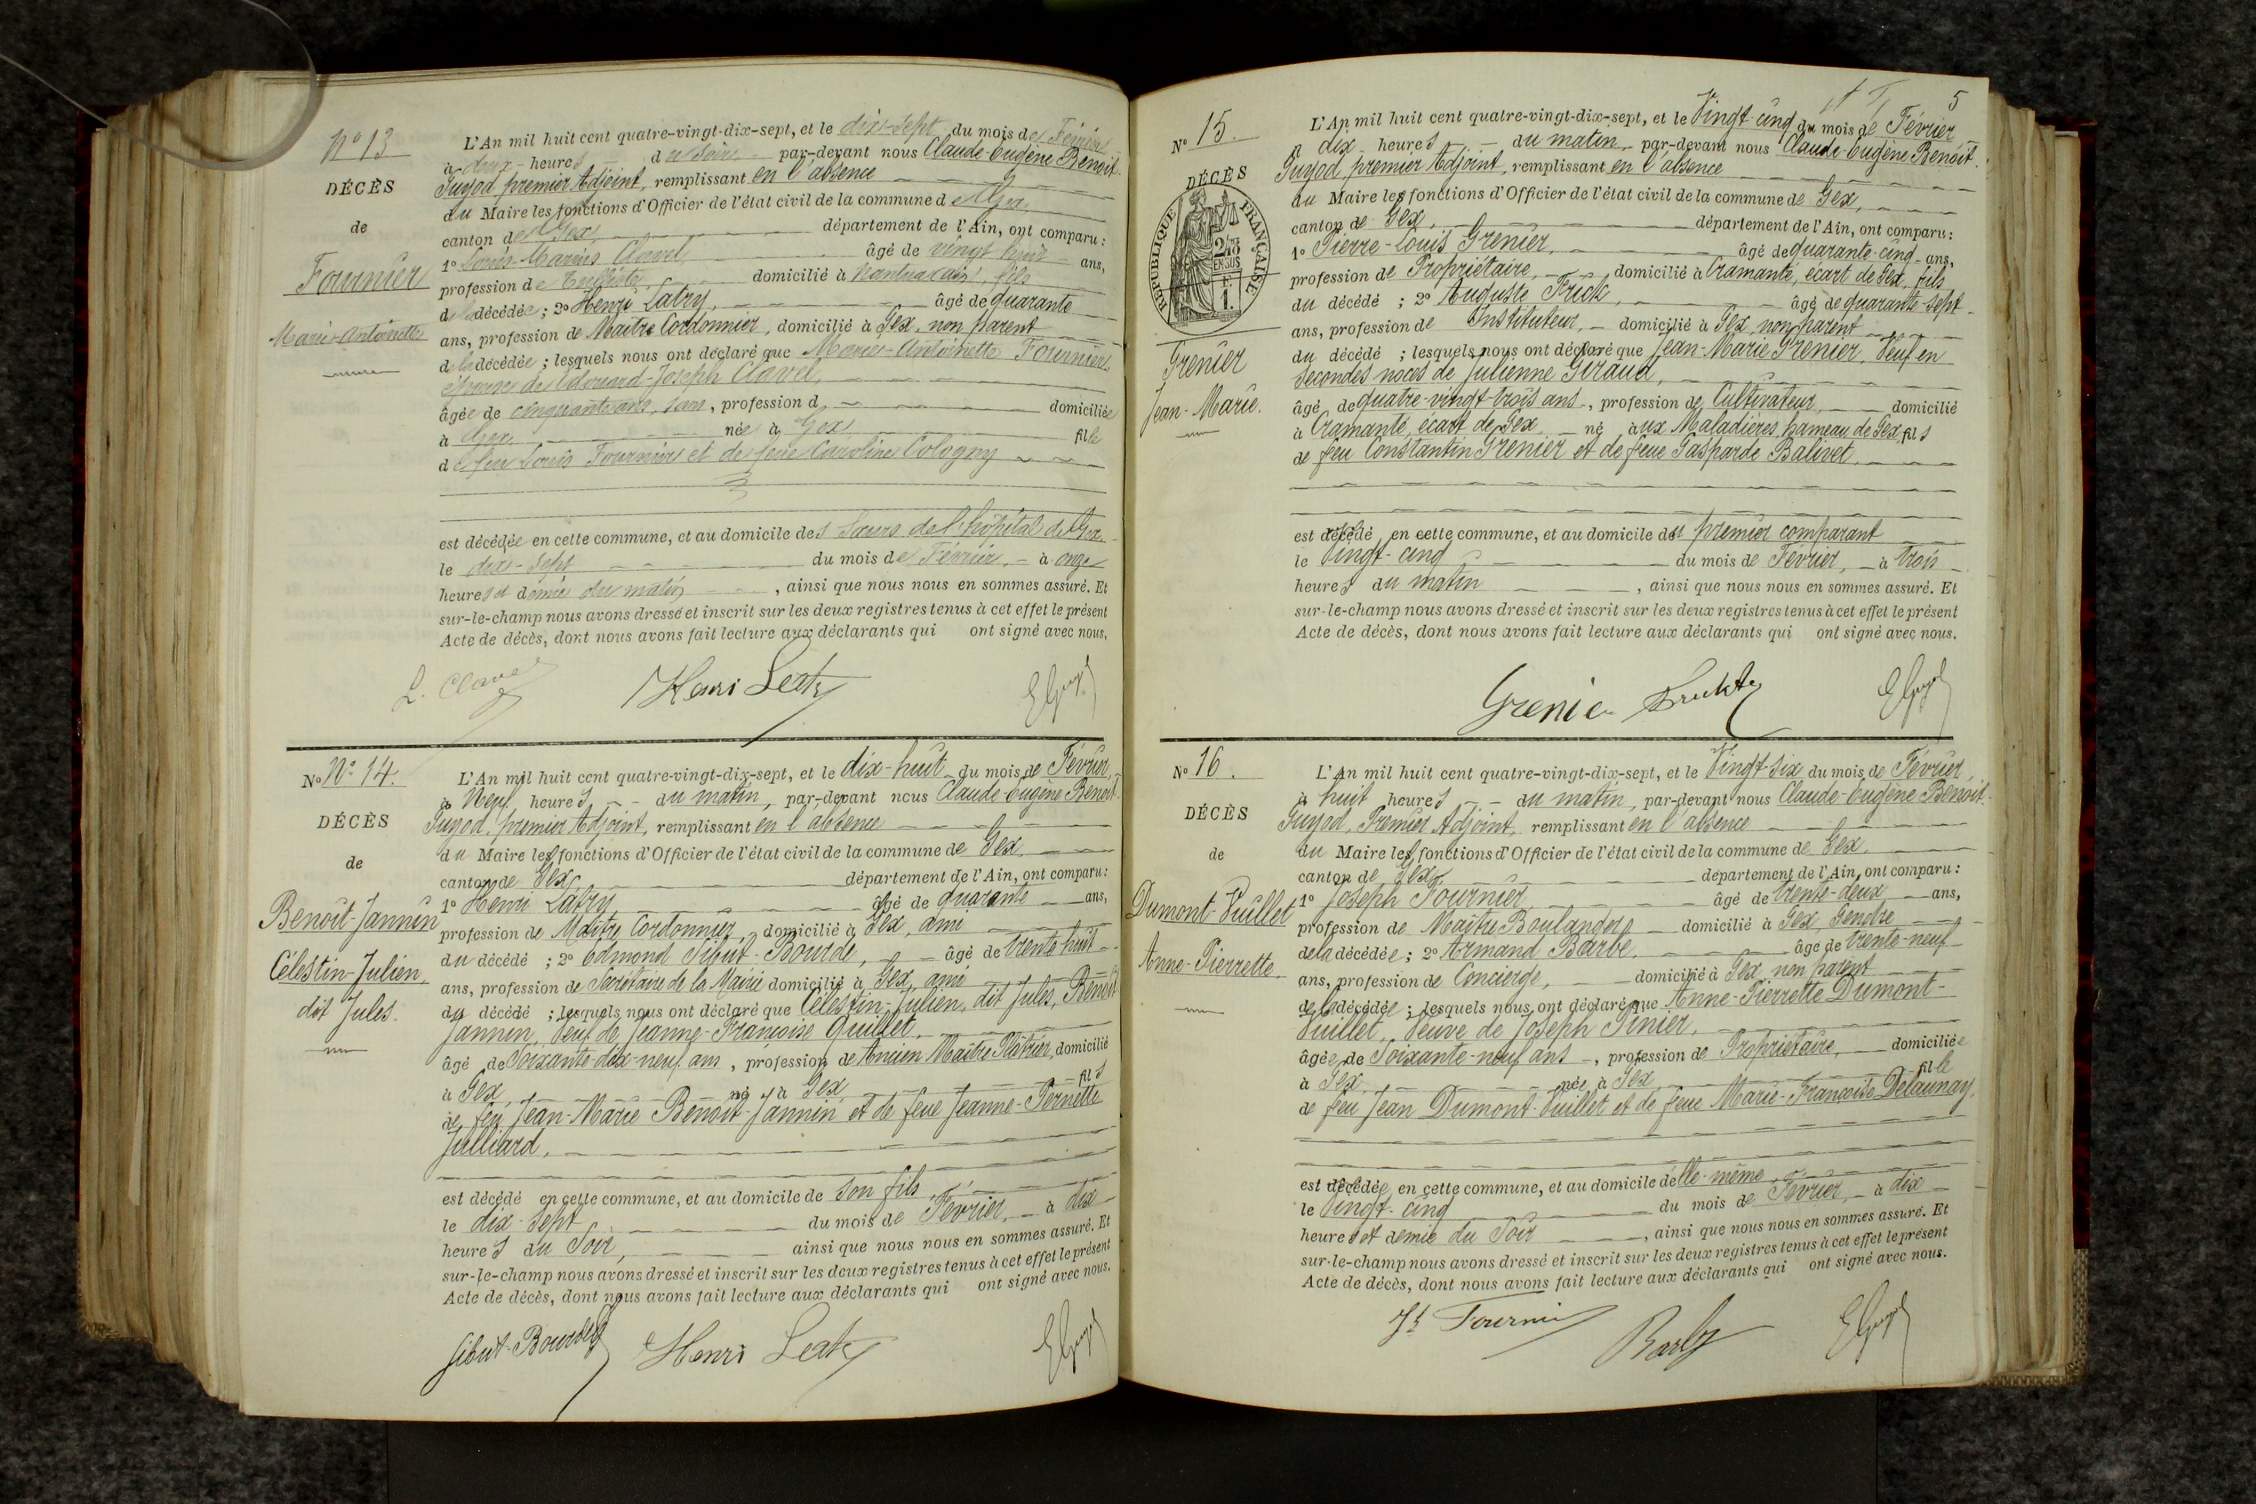 No 13
DÉCÈS
de
Fournier
Marie-Antoinette
L'An mil huit cent quatre-vingt-dix-sept, et le dix-sept du mois de Février
à deux heures du soir par-devant nous Claude-Eugène Benoit-
Guyod, premier Adjoint, remplissant en l'absence
du Maire les fonctions d'Officier de l'état civil de la commune de Gex,
canton de Gex, département de l'Ain, ont comparu:
1º Louis-Marius Clavel âgé de vingt huit ans,
profession de domicilié à Nantua, fils
de la décédée; 2º Henri Latry, âgé de quarante
ans, profession de Maître Cordonnier, domicilié à Gex, non parent
de la décédée; lesquels nous ont déclaré que Marie-Antoinette Fournier,
épouse de Edouard-Joseph Clavel,
âgée de cinquante ans, sans, profession d domiciliée
à Gex née à Gex fille
de feu Louis Fournier et de feue Caroline Cologny
est décédée en cette commune, et au domicile des Sœurs de l'hôpital de Gex
le dix-sept du mois de Février, à onze
heures et demie du matin, ainsi que nous nous en sommes assuré. Et
sur-le-champ nous avons dressé et inscrit sur les deux registres tenus à cet effet le présent
Acte de décès, dont nous avons fait lecture aux déclarants qui ont signé avec nous.
L. Clavel Henri Latry EGuyod
No Nº 14.
DÉCÈS
de
Benoît-Jannin
Célestin-Julien,
dit Jules.
L'An mil huit cent quatre-vingt-dix-sept, et le dix-huit du mois de Février,
à Neuf heures du matin, par-devant nous Claude-Eugène Benoit-
Guyod, premier Adjoint, remplissant en l'absence
du Maire les fonctions d'Officier de l'état civil de la commune de Gex.
canton de Gex, département de l'Ain, ont comparu:
1º Henri Latry âgé de quarante ans,
profession de Maître Cordonnier, domicilié à Gex, ami
du décédé; 2º Edmond Sibut-Bourde, âgé de trente huit
ans, profession de Secrétaire de la Mairie domicilié à Gex, ami
du décédé; lesquels nous ont déclaré que Célestin-Julien, dit Jules, Benoit-
Jannin, Veuf de Jeanne-Françoise Quillet,
âgé de Soixante-dix-neuf ans, profession de Ancien Maître Plâtrier, domicilié
à Gex, né à Gex, fils
de feu Jean-Marie Benoit-Jannin et de feue Jeanne-Pernette
Julliard.
est décédé en cette commune, et au domicile de Son fils,
le dix-sept du mois de Février, à dix
heures du Soir, ainsi que nous nous en sommes assuré. Et
sur-le-champ nous avons dressé et inscrit sur les deux registres tenus à cet effet le présent
Acte de décès, dont nous avons fait lecture aux déclarants qui ont signé avec nous.
Sibut-Bourde Henri Latry EGuyod
5
No 15.
DÉCÈS
REPUBLIQUE FRANÇAISE
2/10
EN SUS
1F
Grenier
Jean-Marie.
L'An mil huit cent quatre-vingt-dix-sept, et le Vingt-cinq du mois de Février
à dix heures du matin, par-devant nous Claude-Eugène Benoit-
Guyod, premier Adjoint, remplissant en l'absence
du Maire les fonctions d'Officier de l'état civil de la commune de Gex,
canton de Gex, département de l'Ain, ont comparu:
1º Pierre-Louis Grenier, âgé de quarante-cinq ans,
profession de Propriétaire, domicilié à Cramanté, écart de Gex, fils
du décédé; 2º Auguste Frick, âgé de quarante-sept
ans, profession de Instituteur, domicilié à Gex, non parent
du décédé; lesquels nous ont déclaré que Jean-Marie Grenier, Veuf en
Secondes noces de Julienne Giraud,
âgé de quatre-vingt-trois ans, profession de Cultivateur, domicilié
à Cramanté, écart de Gex, né aux Maladières, hameau de Gex fils
de feu Constantin Grenier et de feue Gasparde Balivet.
est décédé en cette commune, et au domicile du premier comparant
le Vingt-cinq du mois de Février, à trois
heures du matin, ainsi que nous nous en sommes assuré. Et
sur-le-champ nous avons dressé et inscrit sur les deux registres tenus à cet effet le présent
Acte de décès, dont nous avons fait lecture aux déclarants qui ont signé avec nous.
Grenier EGuyod
No 16.
DÉCÈS
de
Dumont-Vuillet
Anne-Pierrette.
L'An mil huit cent quatre-vingt-dix-sept, et le Vingt-Six du mois de Février,
à huit heures du matin, par-devant nous Claude-Eugène Benoit-
Guyod, Premier Adjoint, remplissant en l'absence
du Maire les fonctions d'Officier de l'état civil de la commune de Gex.
canton de Gex, département de l'Ain, ont comparu:
1º Joseph Fournier, âgé de trente-deux ans,
profession de Maître Boulanger domicilié à Gex, Gendre
de la décédée; 2º Armand Barbe, âgé de trente-neuf
ans, profession de Concierge, domicilié à Gex, non parent
de la décédée; lesquels nous ont déclaré que Anne-Pierrette Dumont-
Vuillet, Veuve de Joseph Pinier,
âgée de Soixante-neuf ans, profession de Propriétaire, domiciliée
à Gex, née à Gex, fille
de feu Jean Dumont-Vuillet et de feue Marie-Françoise Delaunay.
est décédée en cette commune, et au domicile d'elle-même,
le Vingt-cinq du mois de Février, à dix
heures et demie du Soir, ainsi que nous nous en sommes assuré. Et
sur-le-champ nous avons dressé et inscrit sur les deux registres tenus à cet effet le présent
Acte de décès, dont nous avons fait lecture aux déclarants qui ont signé avec nous.
Jh Fournier Barbe EGuyod